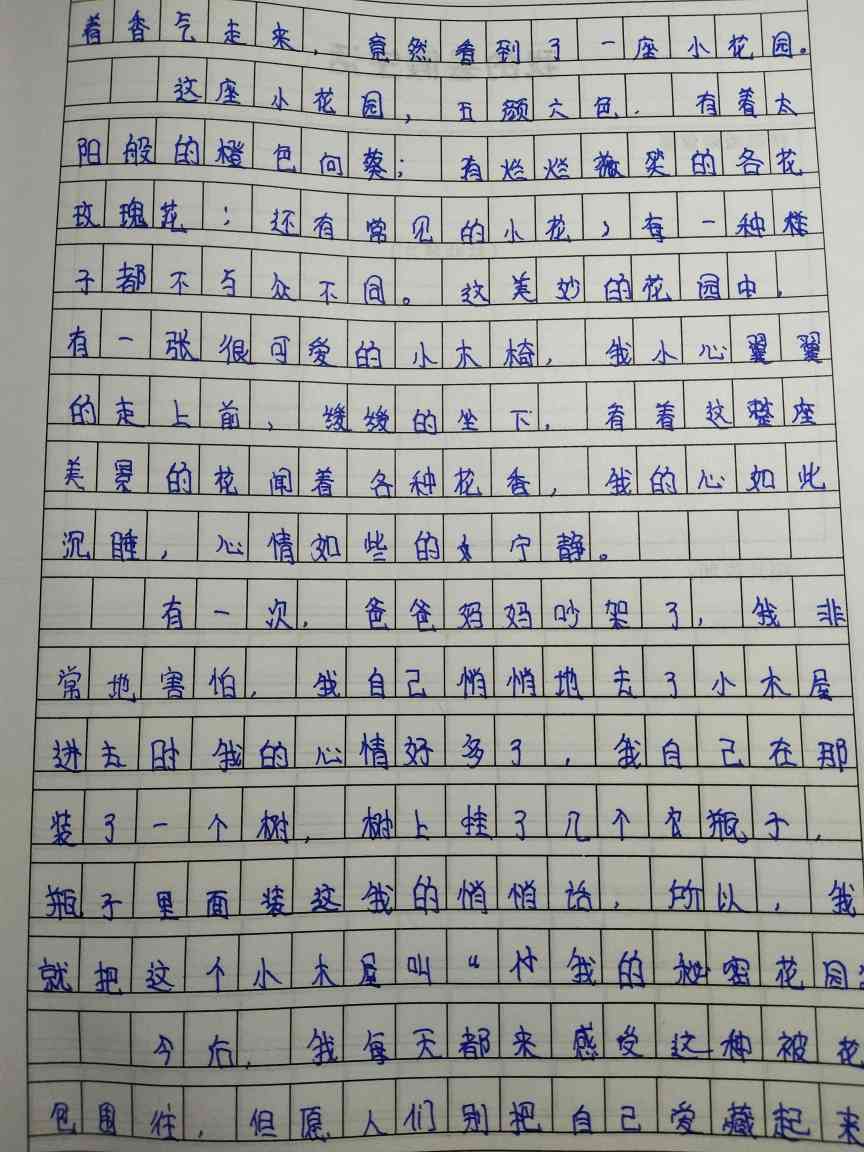 着香气走来，竟然看到了一座小花园。
这座小花园，五颜六色．有着太
阳般的橙色向葵；有烂烂薇笑的各花
玫瑰花；还有常见的小花，每一种样
子都不与众不同。这美妙的花园中，
有一张很可爱的小木椅，我小心翼翼
的走上前，缓缓的坐下，看着这整座
美景的花闻着各种花香，我的心如此
沉睡，心情如些的宁静。
有一次，爸爸妈妈吵架了，我非
常地害怕，我自己悄悄地去了小木屋
进去时我的心情好多了，我自己在那
装了一个树，树上挂了几个瓶子，
瓶子里面装这我的悄悄话，所以，我
就把这个小木屋叫“我的秘密花园”
今后，我每天都来感受这种被花
包围住，但愿人们别把自己爱藏起来